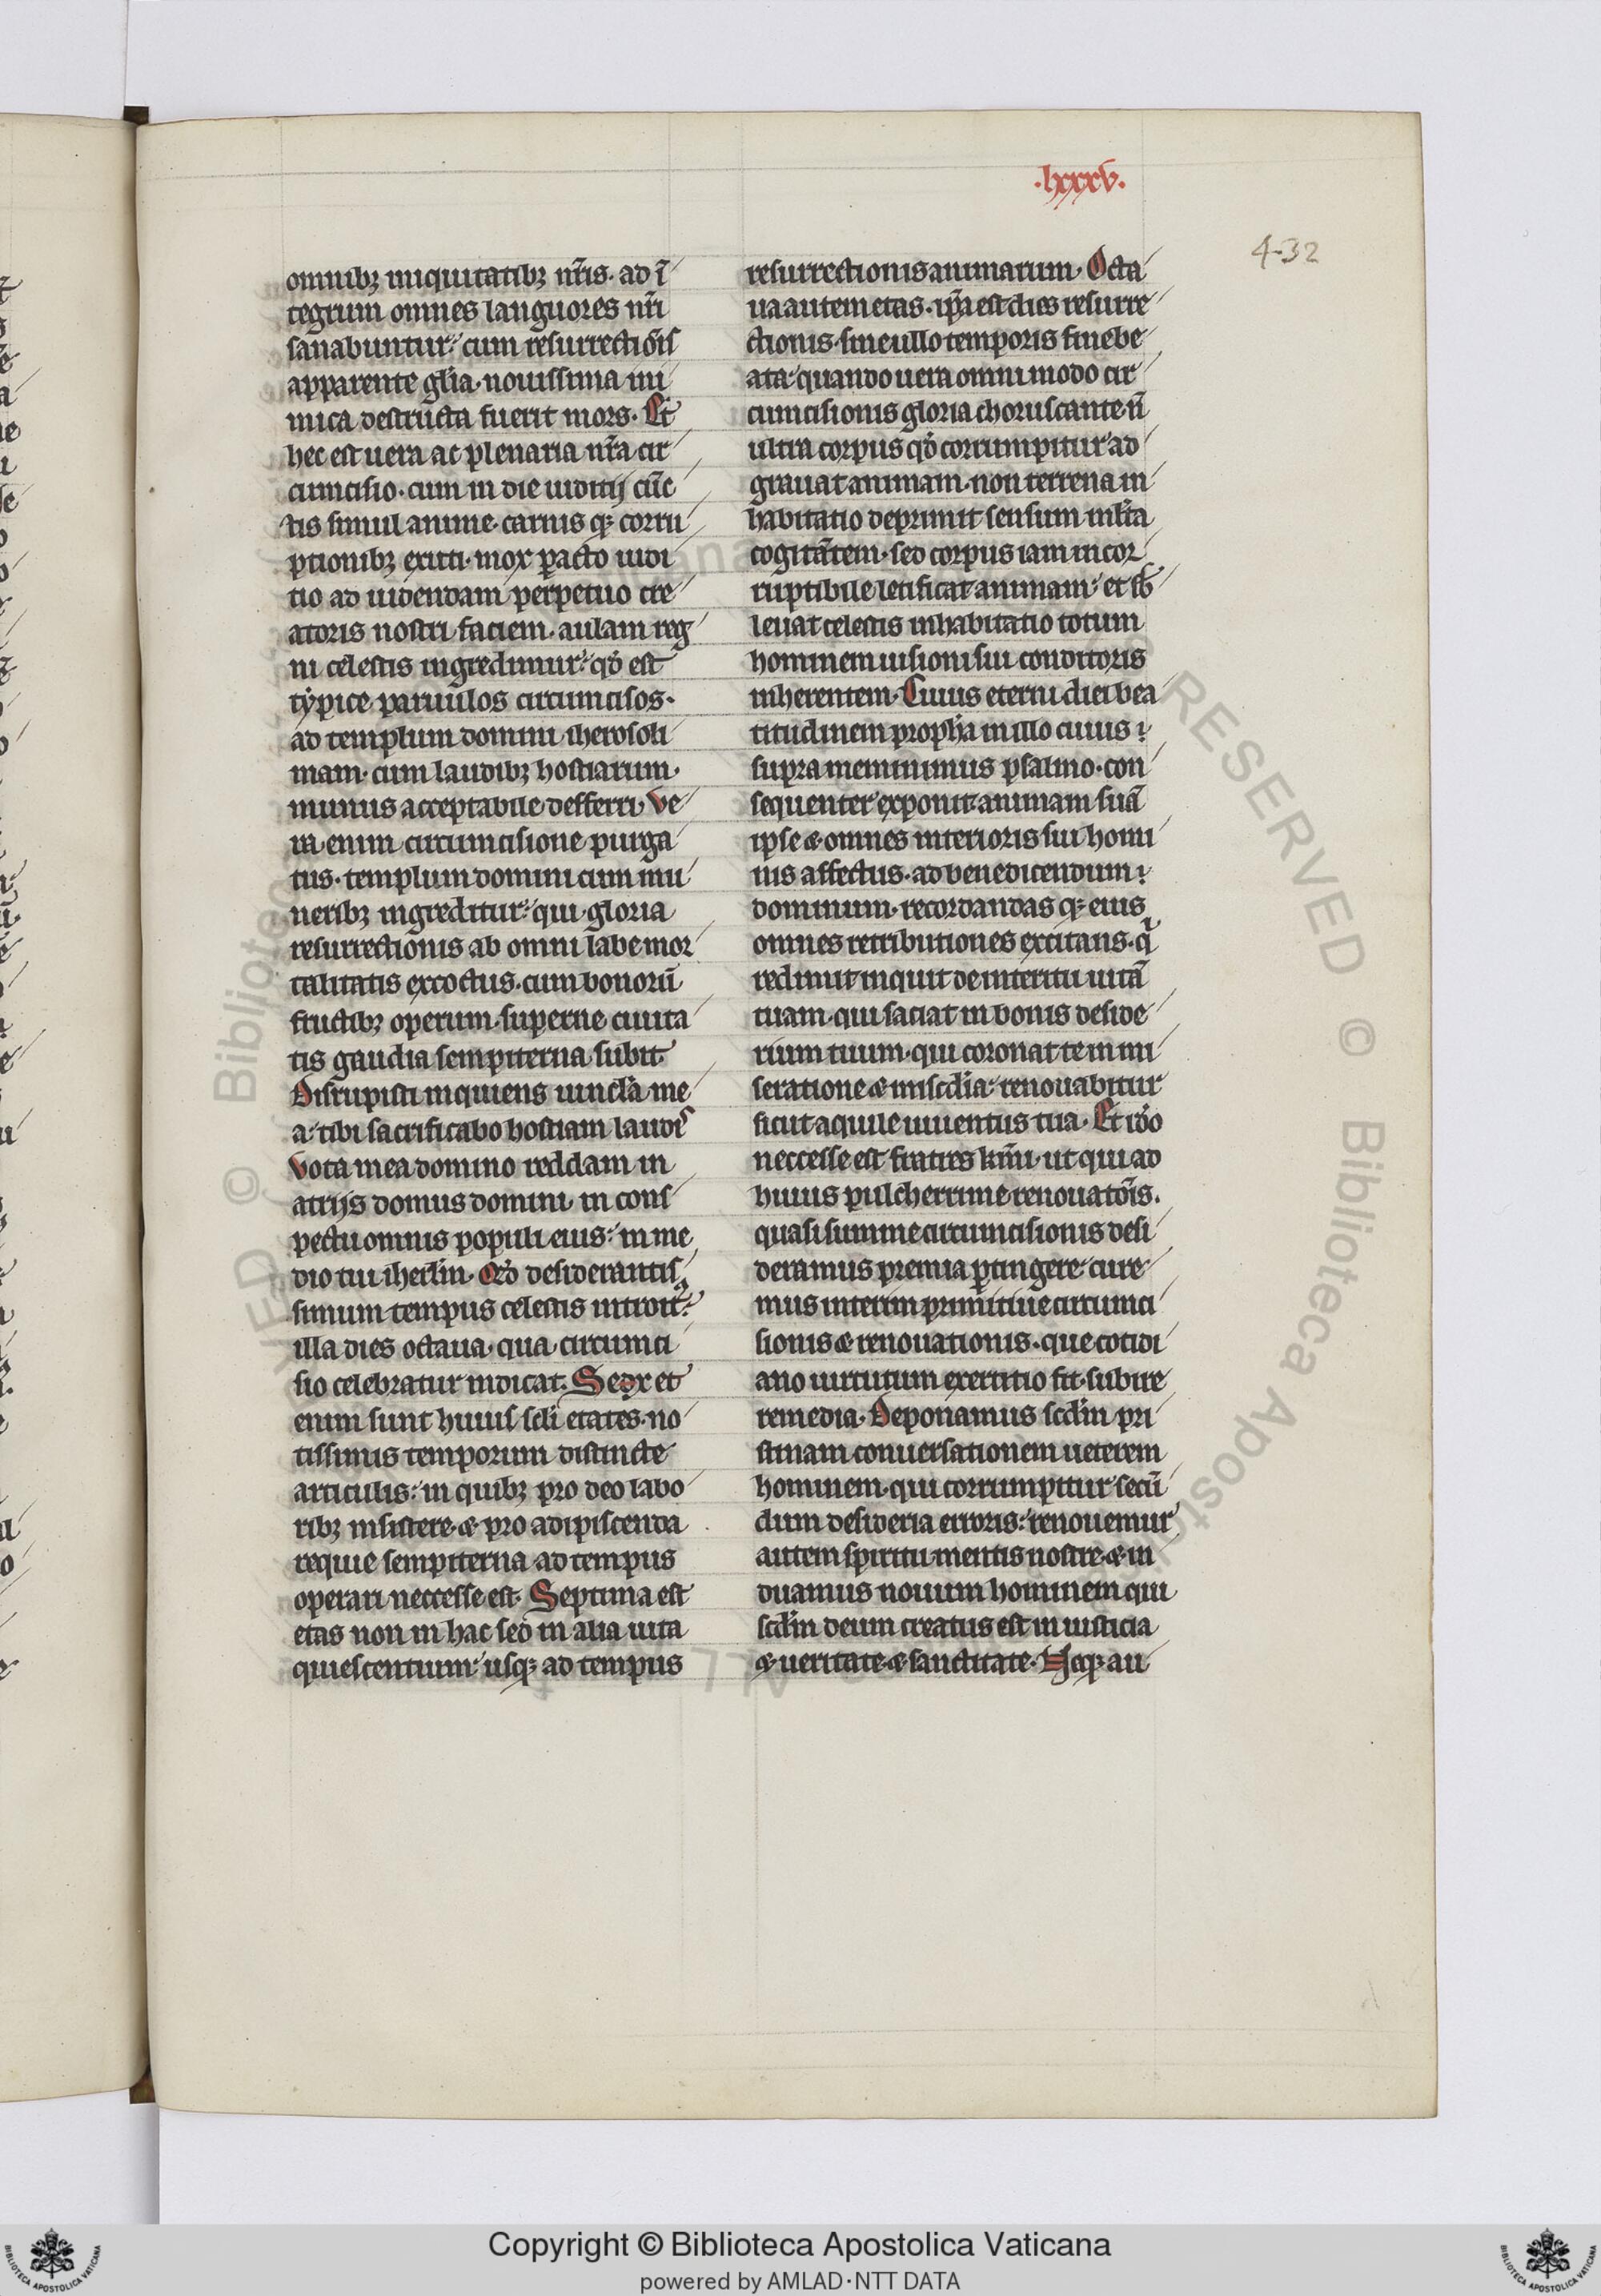 .lxxxv.
4-32
omnibꝫ iniquitatibꝫ nr̃is· ad ĩ
tegrum omnes languores nr̃i
sanabuntur: cum resurrectiõis
apparente gl̃ia· nouissima ini
mica destructa fuerit mors· Et
hec est uera ac plenaria nr̃a cir
cumcisio· cum in die iuditij cũc
tis simul anime· carnis qꝫ corru
ptionibꝫ exuti· mox ꝑacto iudi
tio ad uidendam perpetuo cre
atoris nostri faciem· aulam reg
ni celestis ingredimur: qđ est
tẏpice paruulos circumcisos·
ad templum domini iherosoli
mam· cum laudibꝫ hostiarum·
munus acceptabile defferri· Ve
ra enim circumcisione purga
tus· templum domini cum mu
neribꝫ ingreditur: qui gloria
resurrectionis ab omni labe mor
talitatis excoctus· cum bonorũ
fructibꝫ operum· superne ciuita
tis gaudia sempiterna subit·
Disrupisti inquiens uincl̃a me
a: tibi sacrificabo hostiam laudis
Vota mea domino reddam in
atrijs domus domini· in cons
pectu omnis populi eius: in me
dio tui iherl̃m· Qđ desiderantis
simum tempus celestis introit9:
illa dies octaua· qua circumci
sio celebratur indicat· Sex et
enim sunt huius scl̃i etates· no
tissimis temporum distincte
articulis: in quibꝫ pro deo labo
ribꝫ insistere· & pro adipiscenda
requie sempiterna ad tempus
operari neccesse est· Septima est
etas non in hac sed in alia uita
quiescentium: usqꝫ ad tempus
resurrectionis animarum· Octa
ua autem etas· ip̃a est dies resurre
ctionis· sine ullo temporis fine be
ata: quando uera omni modo cir
cumcisionis gloria choruscante· ñ
ultra corpus qđ corrumpitur ad
grauat animam· non terrena in
habitatio deprimit sensum ml̃ta
cogitãtem· sed corpus iam incor
ruptibile letificat animam: et sb̃
leuat celestis inhabitatio totum
hominem uisioni sui conditoris
inherentem· Cuius eterni diei bea
titudinem proph̃a in illo cuius ⁊
supra meminimus psalmo· con
sequenter exponit: animam suã
ipse & omnes interioris sui homi
nis affectus· ad benedicendum ⁊
dominum· recordandas qꝫ eius
omnes retributiones excitans· qͥ
redimit inquit de interitu uitã
tuam· qui saciat in bonis deside
rium tuum· qui coronat te in mi
seratione & misc̃dia: renouabitur
sicut aquile iuuentus tua· Et ido
neccesse est fratres km̃i· ut qui ad
huius pulcherrime renouatõis·
quasi summe circumcisionis desi
deramus premia ꝑtingere· cure
mus interim primitiue circumci
sionis & renouationis· que cotidi
ano uirtutum exercitio fit· subire
remedia· Deponamus scd̃m pri
stinam conuersationem ueterem
hominem· qui corrumpitur secũ
dum desideria erroris: renouemur
autem spiritu mentis nostre· & in
duamus nouum hominem qui
scd̃m deum creatus est in iusticia
& ueritate & sanctitate· Neqꝫ au
© Biblioteca Apostolica
RESERVED
Copyright © Biblioteca Apostolica Vaticana
powered by AMLAD·NTT DATA